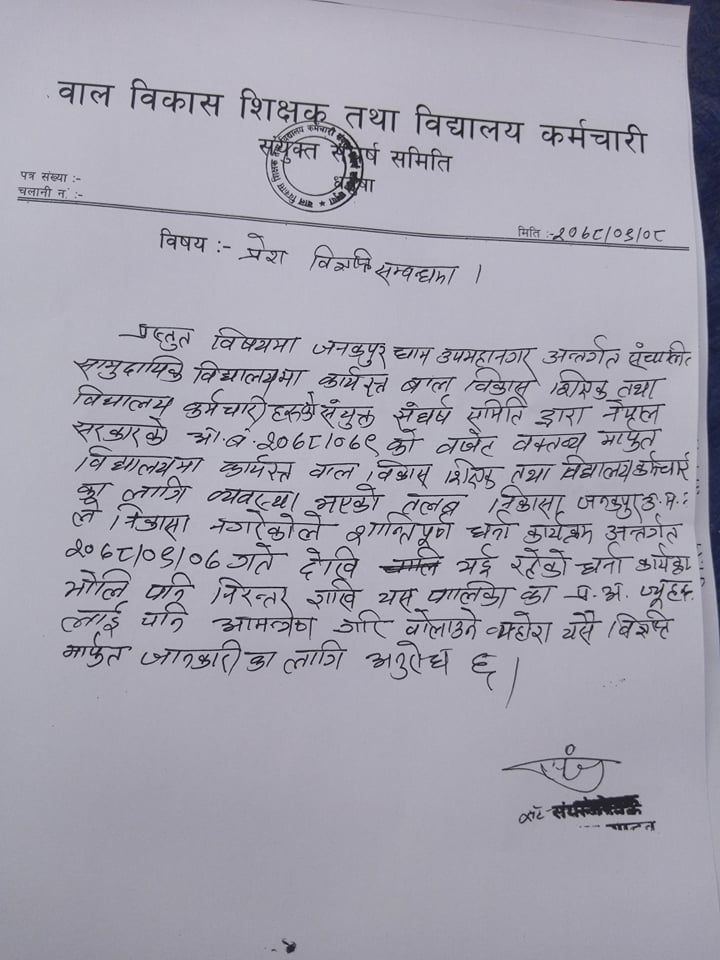 वाल विकास शिक्षक तथा विद्यालय कर्मचारी
संयुक्त संघर्ष समिति
धनुषा
पत्र संख्या :-
चलानी नं :-
मिति :- २०७८/०९/०८
विषय :- प्रेस विज्ञप्ति सम्बन्धमा ।
प्रस्तुत विषयमा जनकपुर धाम उपमहानगर अन्तर्गत संचालित
सामुदायिक विद्यालयमा कार्यरत बाल विकास शिक्षक तथा
विद्यालय कर्मचारीहरुको संयुक्त संघर्ष समिति द्वारा नेपाल
सरकारको आ.ब. २०७८/०७९ को वजेट वक्तव्य मार्फत
विद्यालयमा कार्यरत वाल विकास शिक्षक तथा विद्यालय कर्मचारी
का लागि व्यवस्था भएको तलब निकासा जनकपुर उ.म.
ले निकासा नगरेकोले शान्तिपूर्ण धर्ना कार्यक्रम अन्तर्गत
२०७८/०९/०६ गते देखि भई रहेको धर्ना कार्यक्रम
भोलि पनि निरन्तर राखि यस पालिका का प्र.अ.
लाई पनि आमन्त्रण गरि वोलाउने व्यहोरा यसै विज्ञप्ति
मार्फत जानकारी का लागि अनुरोध छ ।